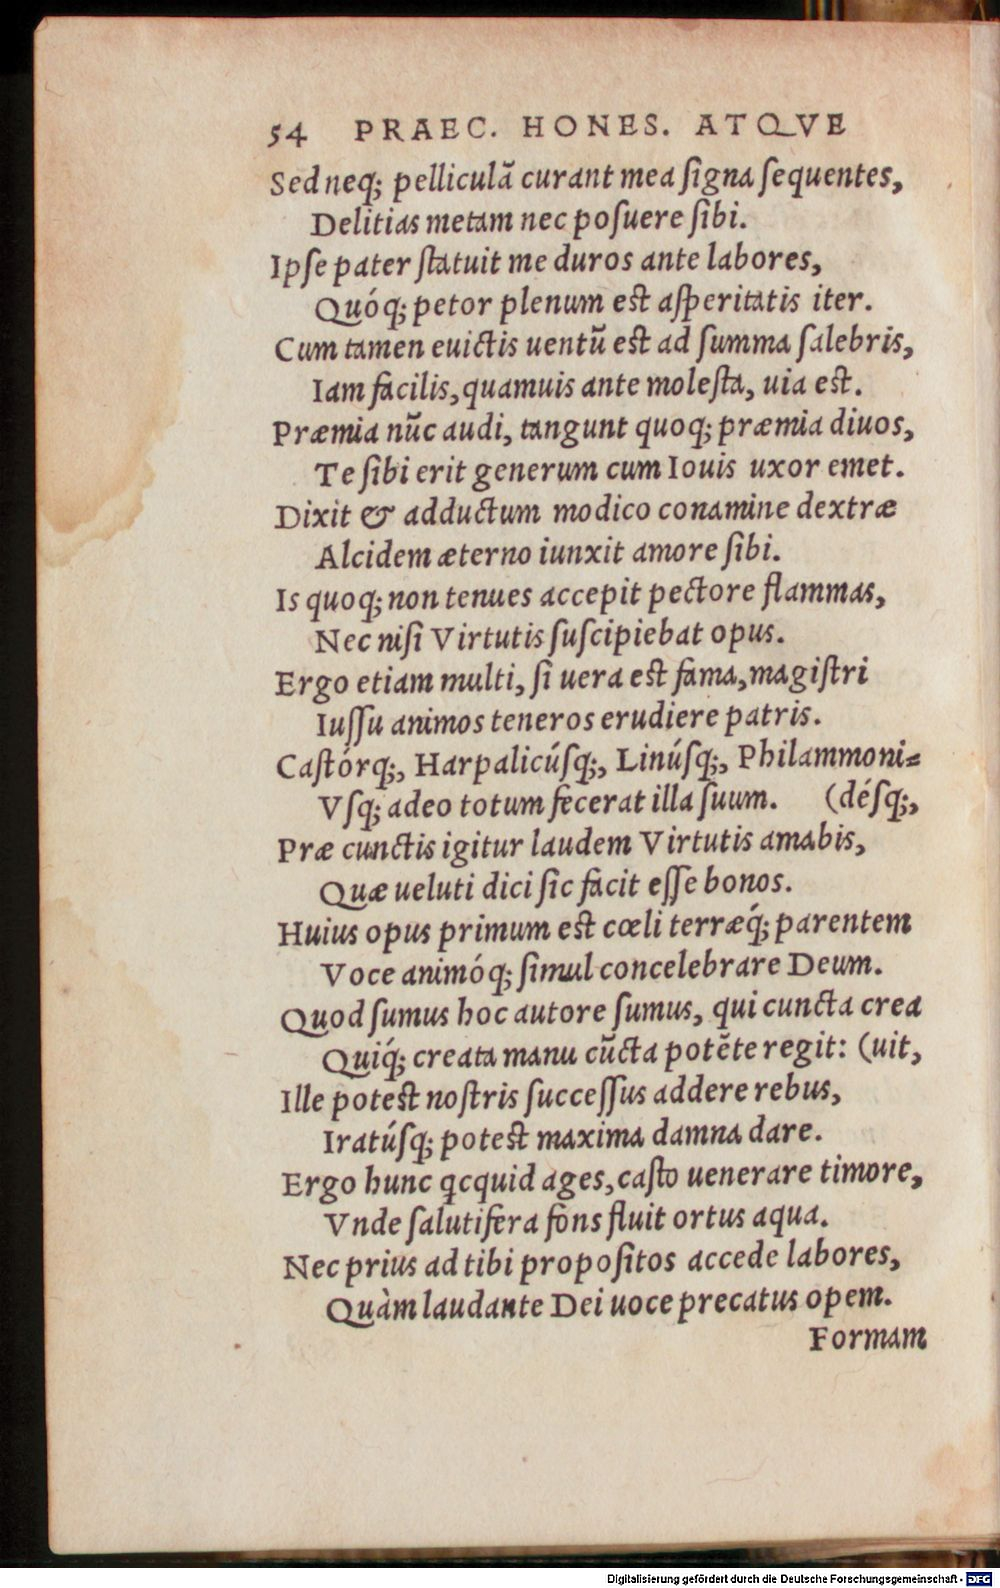 54 PRAEC. HONES. ATQVE
Sed neq; pelliculā curant mea ſigna ſequentes,
Delitias metam nec poſuere ſibi.
Ipſe pater ſtatuit me duros ante labores,
Quóq; petor plenum eſt aſperitatis iter.
Cum tamen euictis uentū eſt ad ſumma ſalebris,
Iam facilis, quamuis ante moleſta, uia eſt.
Præmia nūc audi, tangunt quoq; præmia diuos,
Te ſibi erit generum cum Iouis uxor emet.
Dixit & adductum modico conamine dextræ
Alcidem æterno iunxit amore ſibi.
Is quoq; non tenues accepit pectore flammas,
Nec niſi Virtutis ſuſcipiebat opus.
Ergo etiam multi, ſi uera eſt fama, magiſtri
Iuſſu animos teneros erudiere patris.
Caſtórq;, Harpalicúſq;, Linúſq;, Philammoni⸗
Vſq; adeo totum fecerat illa ſuum. (déſq;,
Præ cunctis igitur laudem Virtutis amabis,
Quæ ueluti dici ſic facit eſſe bonos.
Huius opus primum eſt cœli terræq́; parentem
Voce animóq; ſimul concelebrare Deum.
Quod ſumus hoc autore ſumus, qui cuncta crea
Quiq́; creata manu cūcta potēte regit: (uit,
Ille poteſt noſtris ſucceſſus addere rebus,
Iratúſq; poteſt maxima damna dare.
Ergo hunc qcquid ages, caſto uenerare timore,
Vnde ſalutifera fons fluit ortus aqua.
Nec prius ad tibi propoſitos accede labores,
Quàm laudante Dei uoce precatus opem.
Formam
Digitalisierung gefördert durch die Deutsche Forschungsgemeinschaft - DFG